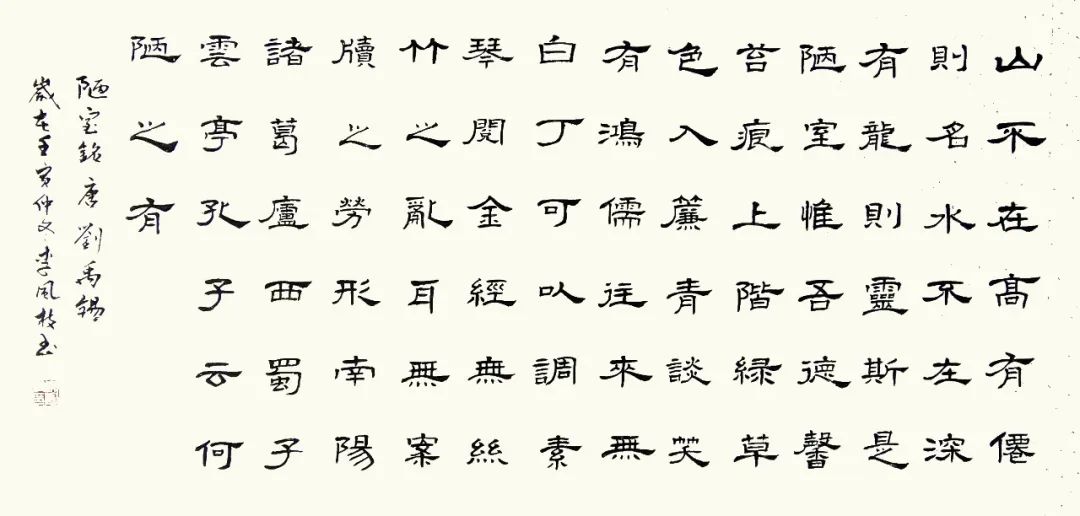 山不在高有僊
則名水不在深
有龍則靈斯是
陋室惟吾德馨
苔痕上階緑草
色入簾青談笑
有鴻儒往來無
白丁可以調素
琴閱金經無絲
竹之亂耳無案
牘之勞形南陽
諸葛廬西蜀子
雲亭孔子云何
陋之有
陋室銘 唐 劉禹錫
歲在壬寅仲文李風枝书